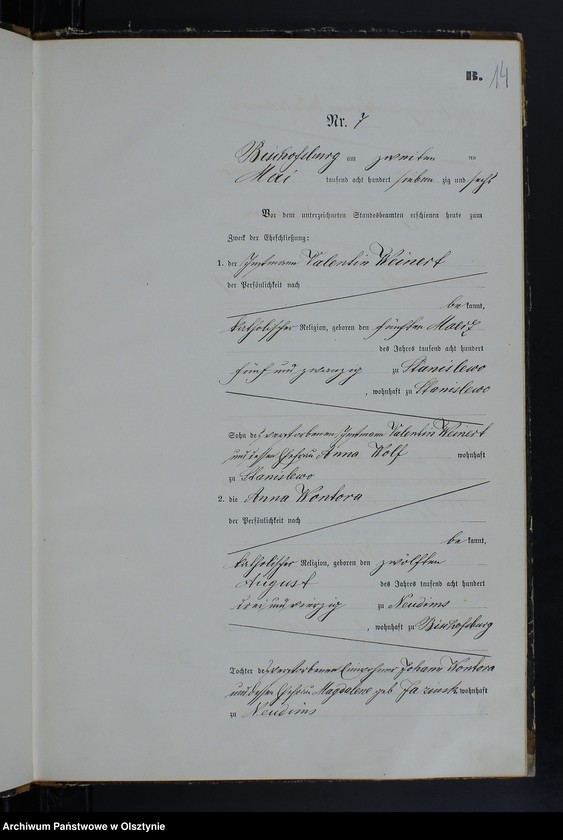 B. 14
Nr. 7
Bischofsburg am zweiten ten
Mai tausend acht hundert sieben zig und sechs
Vor dem unterzeichneten Standesbeamten erschienen heute zum
Zweck der Eheschließung:
1. der Valentin Weinert
der Persönlichkeit nach
be kannt,
katholischer Religion, geboren den fünften Maerz
des Jahres tausend acht hundert
fünf und zwanzig zu Stanislewo
, wohnhaft zu Stanislewo
Sohn des verstorbenen Valentin Weinert
und dessen Ehefrau Anna Wolf wohnhaft
zu Stanislewo
2. die Anna Kontora
der Persönlichkeit nach
be kannt,
katholischer Religion, geboren den zwölften
August des Jahres tausend acht hundert
drei und vierzig zu Neudims
, wohnhaft zu Bischofsburg
Tochter des verstorbenen Einwohner Johann Kontora
und dessen Ehefrau Magdalene geb wohnhaft
zu Neudims
Archiwum Państwowe w Olsztynie